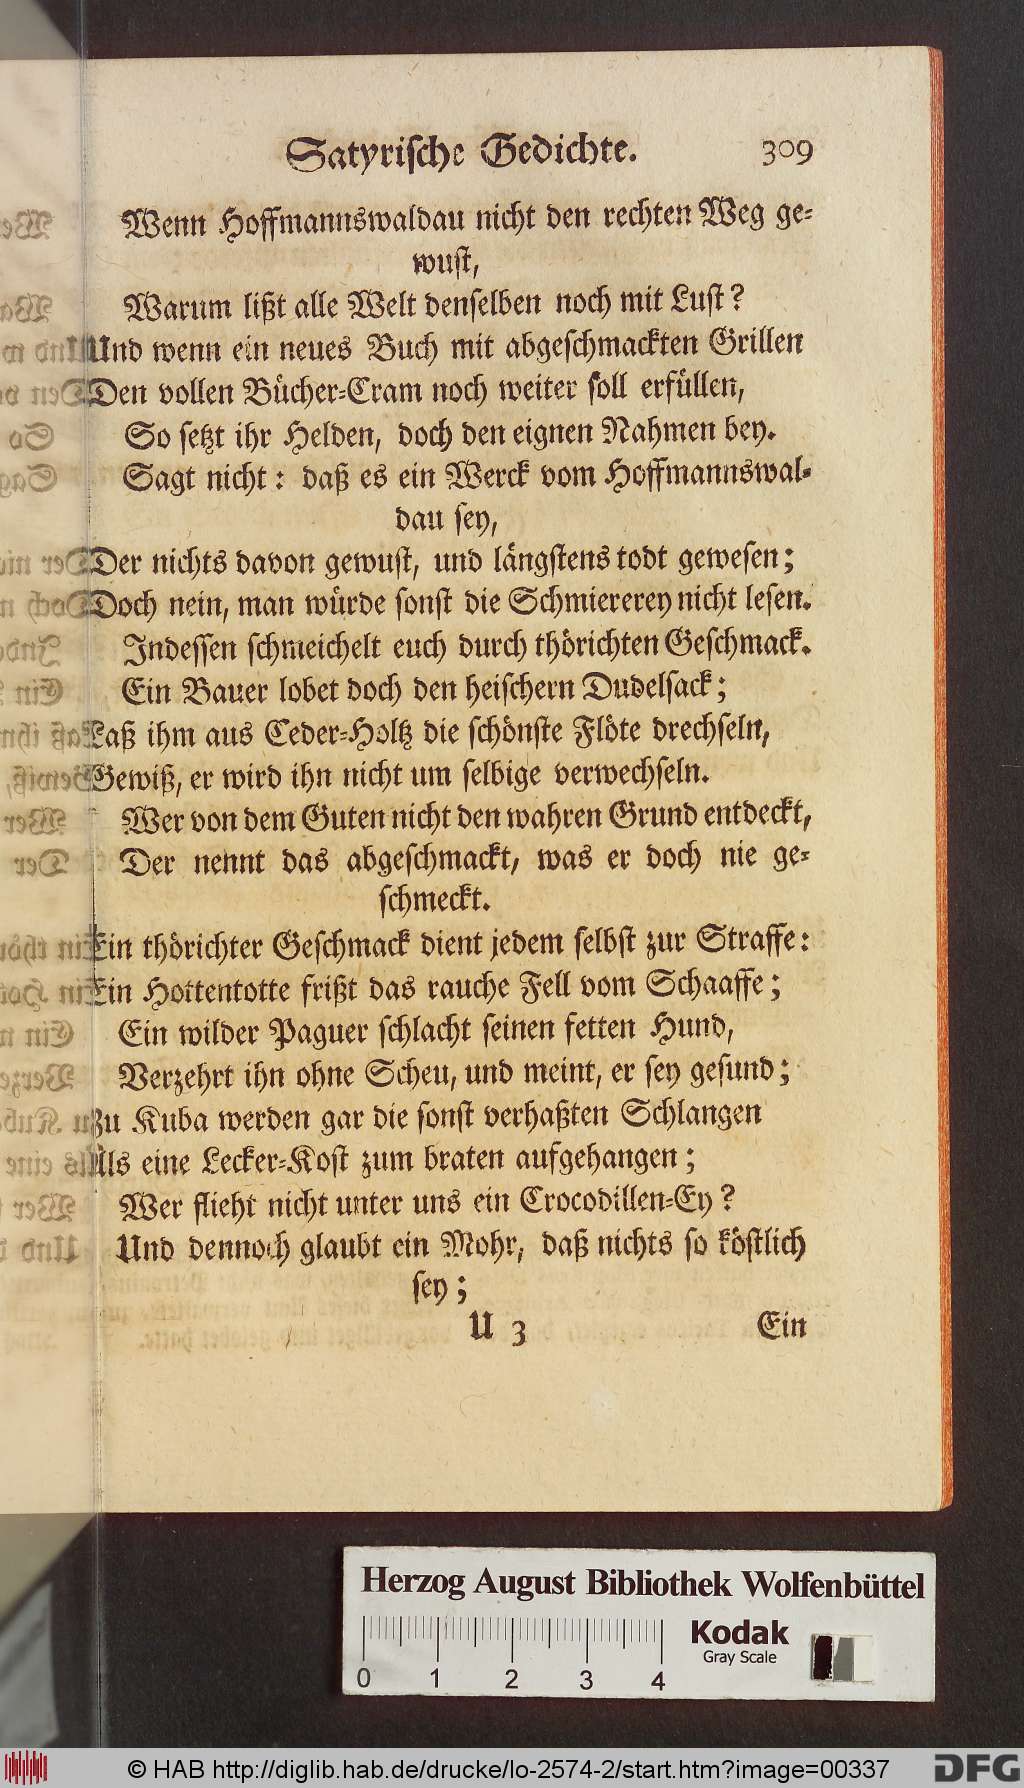 Satyrische Gedichte. 309
Wenn Hoffmannswaldau nicht den rechten Weg ge-
wust,
Warum lißt alle Welt denselben noch mit Lust?
Und wenn ein neues Buch mit abgeschmackten Grillen
Den vollen Bücher-Cram noch weiter soll erfüllen,
So setzt ihr Helden, doch den eignen Nahmen bey.
Sagt nicht: daß es ein Werck vom Hoffmannswal-
dau sey,
Der nichts davon gewust, und längstens todt gewesen;
Doch nein, man würde sonst die Schmiererey nicht lesen.
Indessen schmeichelt euch durch thörichten Geschmack.
Ein Bauer lobet doch den heischern Dudelsack;
Laß ihm aus Ceder-Holtz die schönste Flöte drechseln,
Gewiß, er wird ihn nicht um selbige verwechseln.
Wer von dem Guten nicht den wahren Grund entdeckt,
Der nennt das abgeschmackt, was er doch nie ge-
schmeckt.
Ein thörichter Geschmack dient jedem selbst zur Straffe:
Ein Hottentotte frißt das rauche Fell vom Schaaffe;
Ein wilder Paguer schlacht seinen fetten Hund,
Verzehrt ihn ohne Scheu, und meint, er sey gesund;
Zu Kuba werden gar die sonst verhaßten Schlangen
Als eine Lecker-Kost zum braten aufgehangen;
Wer flieht nicht unter uns ein Crocodillen-Ey?
Und dennoch glaubt ein Mohr, daß nichts so köstlich
sey;
U 3 Ein
Herzog August Bibliothek Wolfenbüttel
Kodak
Gray Scale
0 1 2 3 4
© HAB http://diglib.hab.de/drucke/lo-2574-2/start.htm?image=00337
DFG